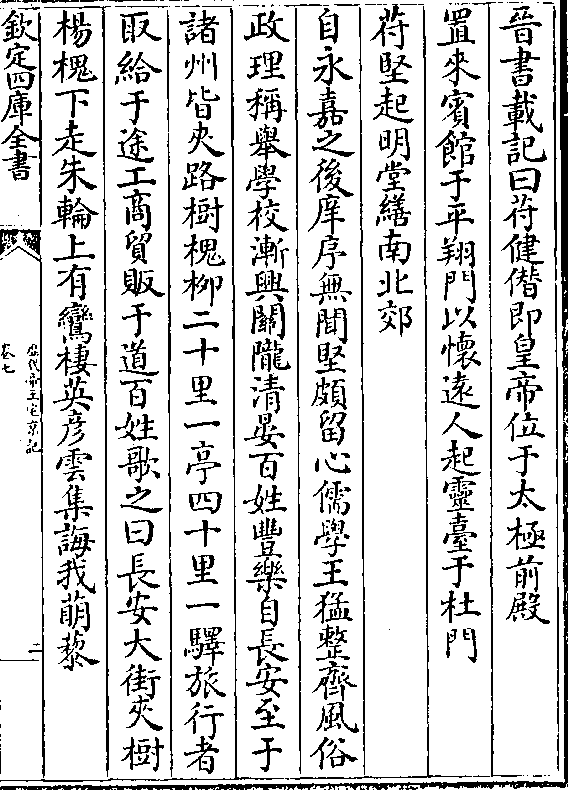 晉書載記曰苻健僭即皇帝位于太極前殿
置來賓館于平翔門以懷遠人起靈臺于杜門
苻堅起明堂繕南北郊
自永嘉之後庠序無聞堅頗留心儒學王猛整齊風俗
政理稱舉學校漸興關隴清晏百姓豐樂自長安至于
諸州皆夾路樹槐柳二十里一亭四十里一驛旅行者
取給于途工商貿販于道百姓歌之曰長安大街夾樹
楊槐下走朱輪上有鸞棲英彦雲集誨我萌黎
欽定四庫全書
歷代帝王宅京記
卷七
二